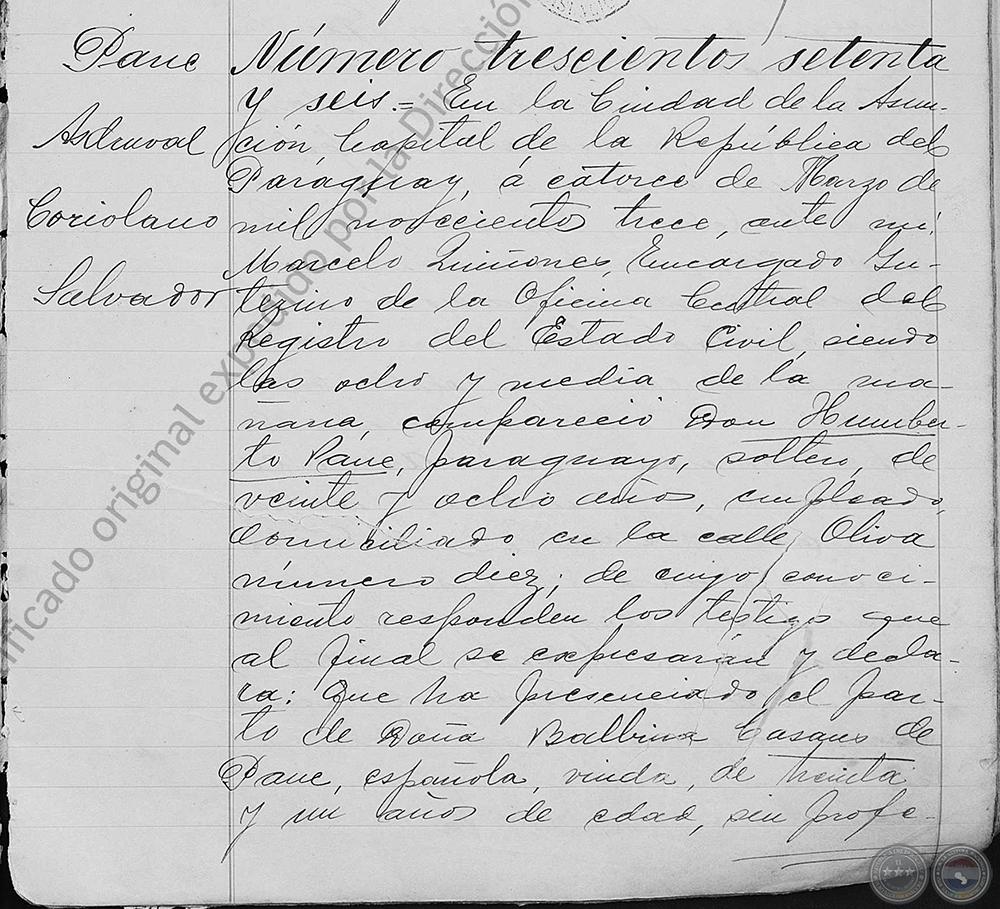 Pane
Asdruval
Coriolano
Salvador
Número trescientos setenta
y seis.= En la Ciudad de la Asun-
ción Capital de la República del
Paraguay, á catorce de Marzo de
mil novecientos trece, ante mí,
Marcelo Quiñones, Encargado In-
terino de la Oficina Central del
Registro del Estado Civil, siendo
las ocho y media de la ma-
ñana, compareció Don Humber-
to Pane, paraguayo, soltero, de
veinte y ocho años, empleado,
domiciliado en la calle Oliva
número diez; de cuyo conoci-
miento responden los testigos que
al final se expresarán y decla-
ra: Que ha presenciado el par-
to de Doña Balbina Casaus de
Pane, española, viuda, de treinta
y un años de edad, sin profe-
ificado original expedido por la Dirección